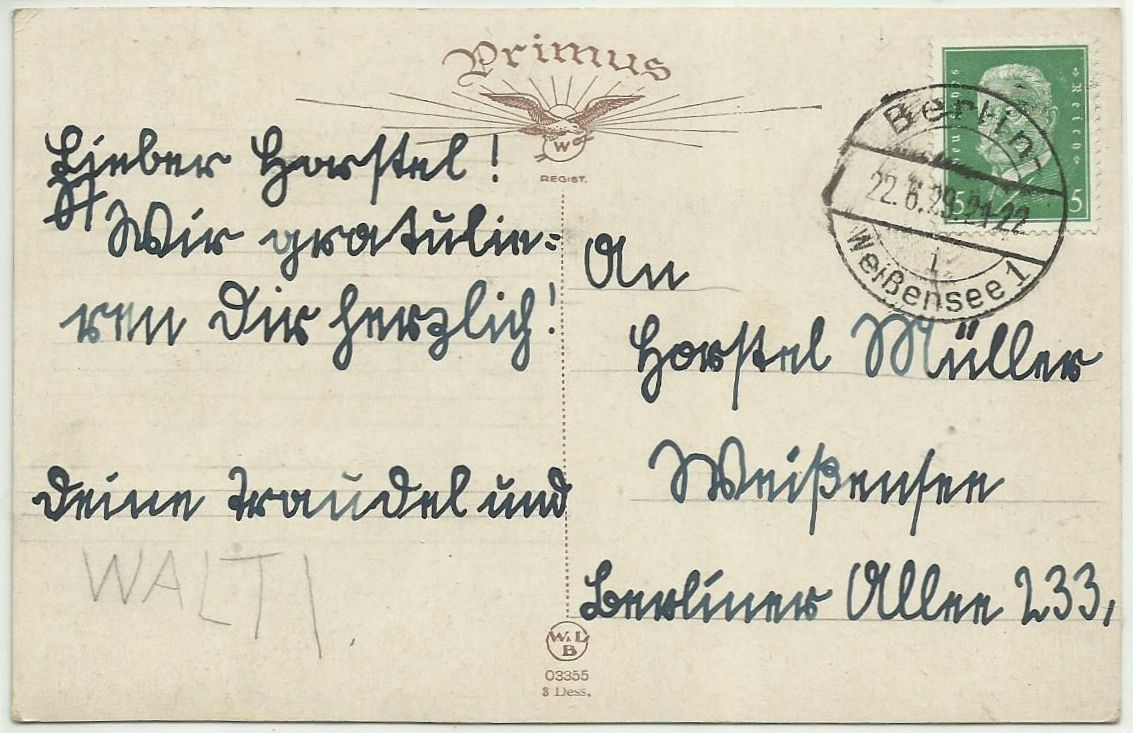 Primus
W
REGIST.
Lieber Horstel!
Wir gratulie=
ren Dir herzlich!
Deine Traudel und
WALTI.
An
Horstel Müller
Weißensee
Berliner Allee 233,
Deutsches Reich
5 5
Berlin
22.6.29.21-22
Weißensee 1
W.L
B
03355
3 Dess.